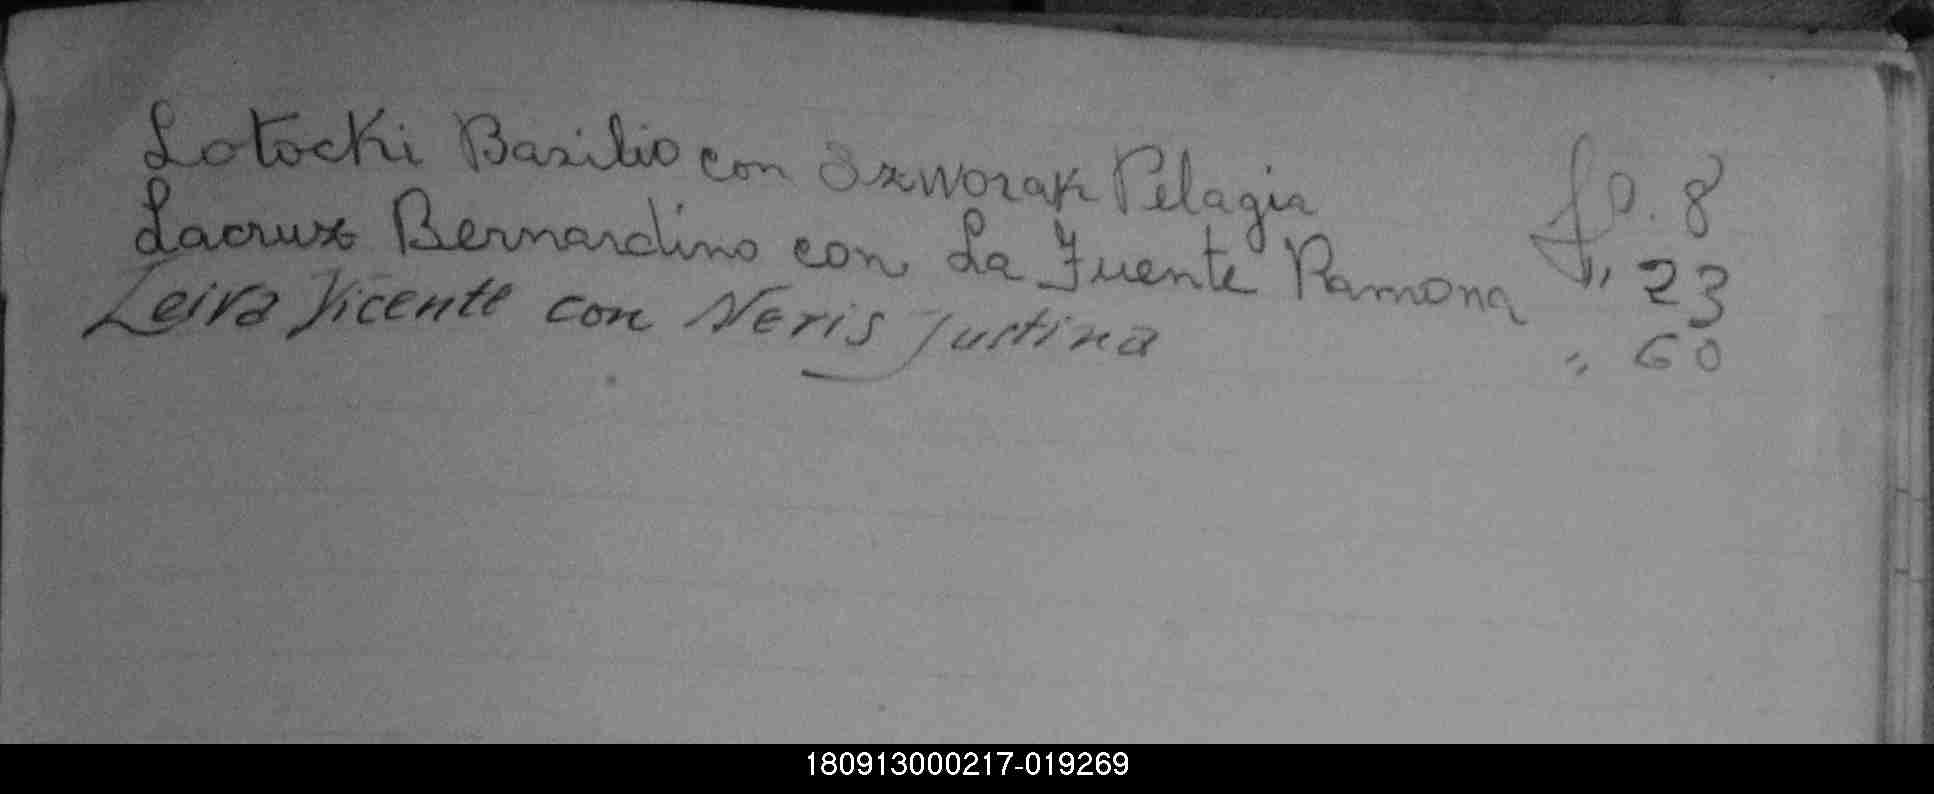 Lotocki Basilio con Szworak Pelagia fo. 8
Lacruz Bernardino con La Fuente Ramona " 23
Leiva Vicente con Neris Justina " 60
180913000217-019269